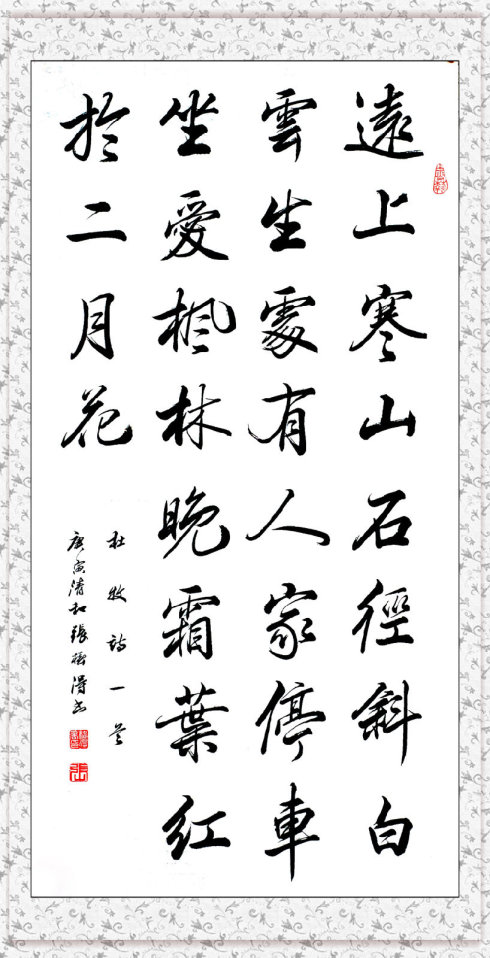 遠上寒山石徑斜白
雲生處有人家停車
坐愛楓林晚霜葉紅
於二月花
杜牧詩一首
庚寅清和張得書